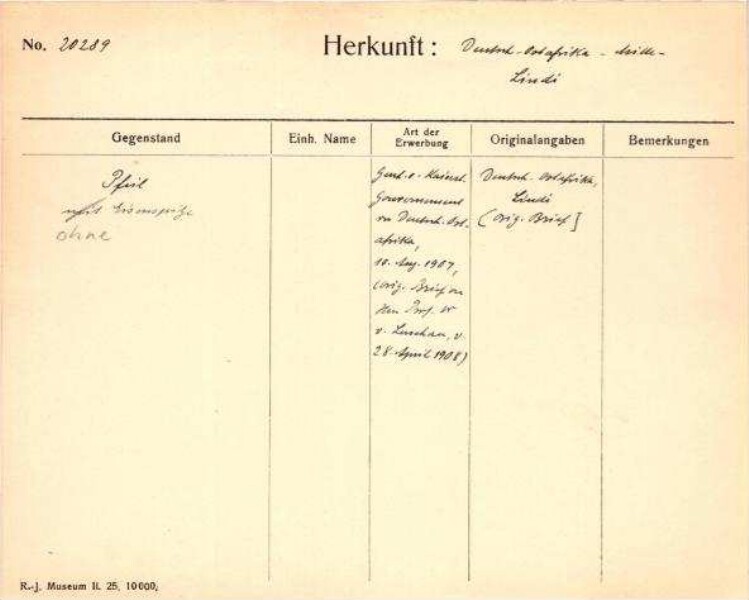 No. 20289
Herkunft: Deutsch-Ostafrika -
Lindi
Gegenstand
Einh. Name
Art der
Erwerbung
Originalangaben
Bemerkungen
Pfeil
mit Eisenspitze
ohne
Gouvernement
Deutsch-Ost-
afrika,
10. Aug. 1907,
(orig. Brief
Prof.
v. Luschan, v.
28. April 1908)
Deutsch-Ostafrika,
Lindi
(orig. Brief]
R.-J. Museum II. 25, 10000,